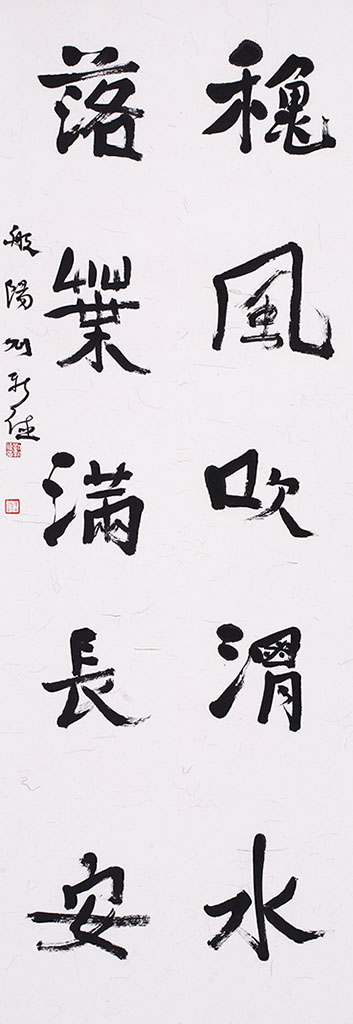 穐風吹渭水
落葉滿長安
般陽刘新德